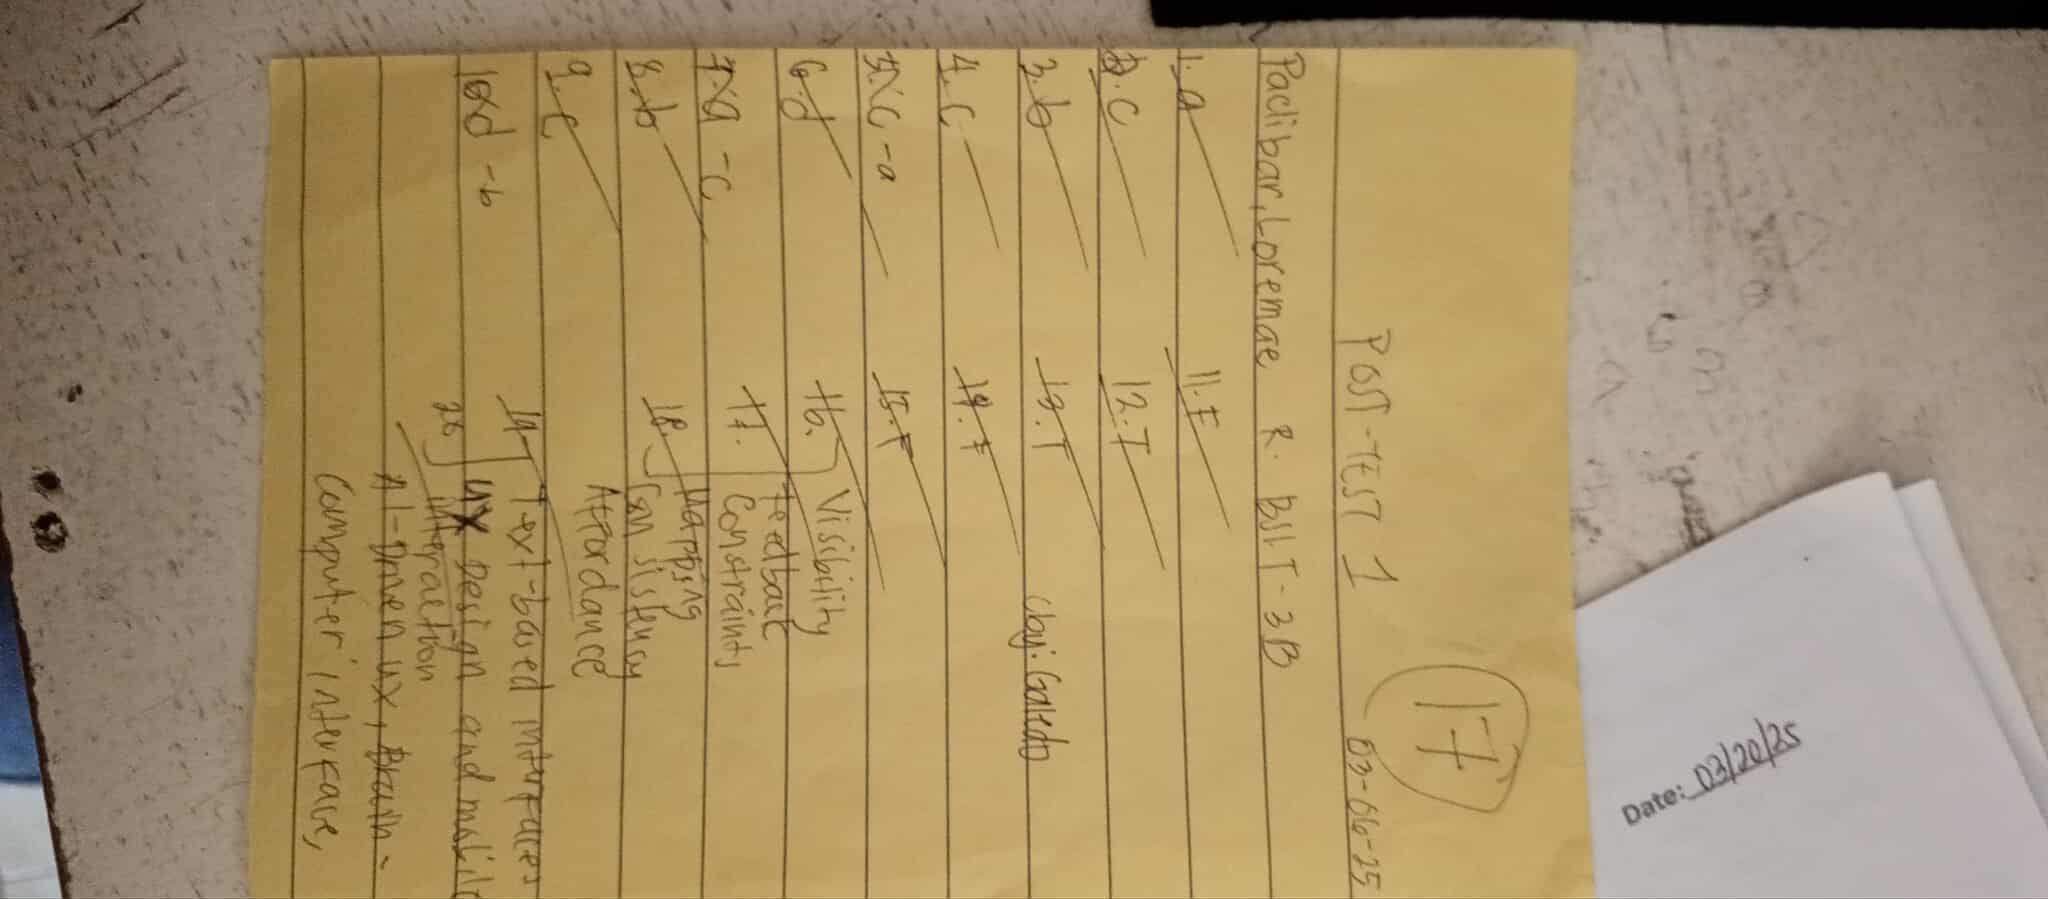 Date: 03/20/25
17
POST-TEST 1
03-06-25
Paclibar, Loremae R. BSIT-3B
1. a
2. c
3. b
4. c
5. c - a
6. d
7. a - c
8. b
9. c
10. d - b
11. F
12. T
13. T
14. F
15. F
cby: Galedo
16.
17.
18.
Visibility
Feedback
Constraints
Mapping
Consistency
Affordance
19
20
Text-based interfaces
UX Design and mobile
interaction
AI-Driven UX, Brain-
Computer interface,